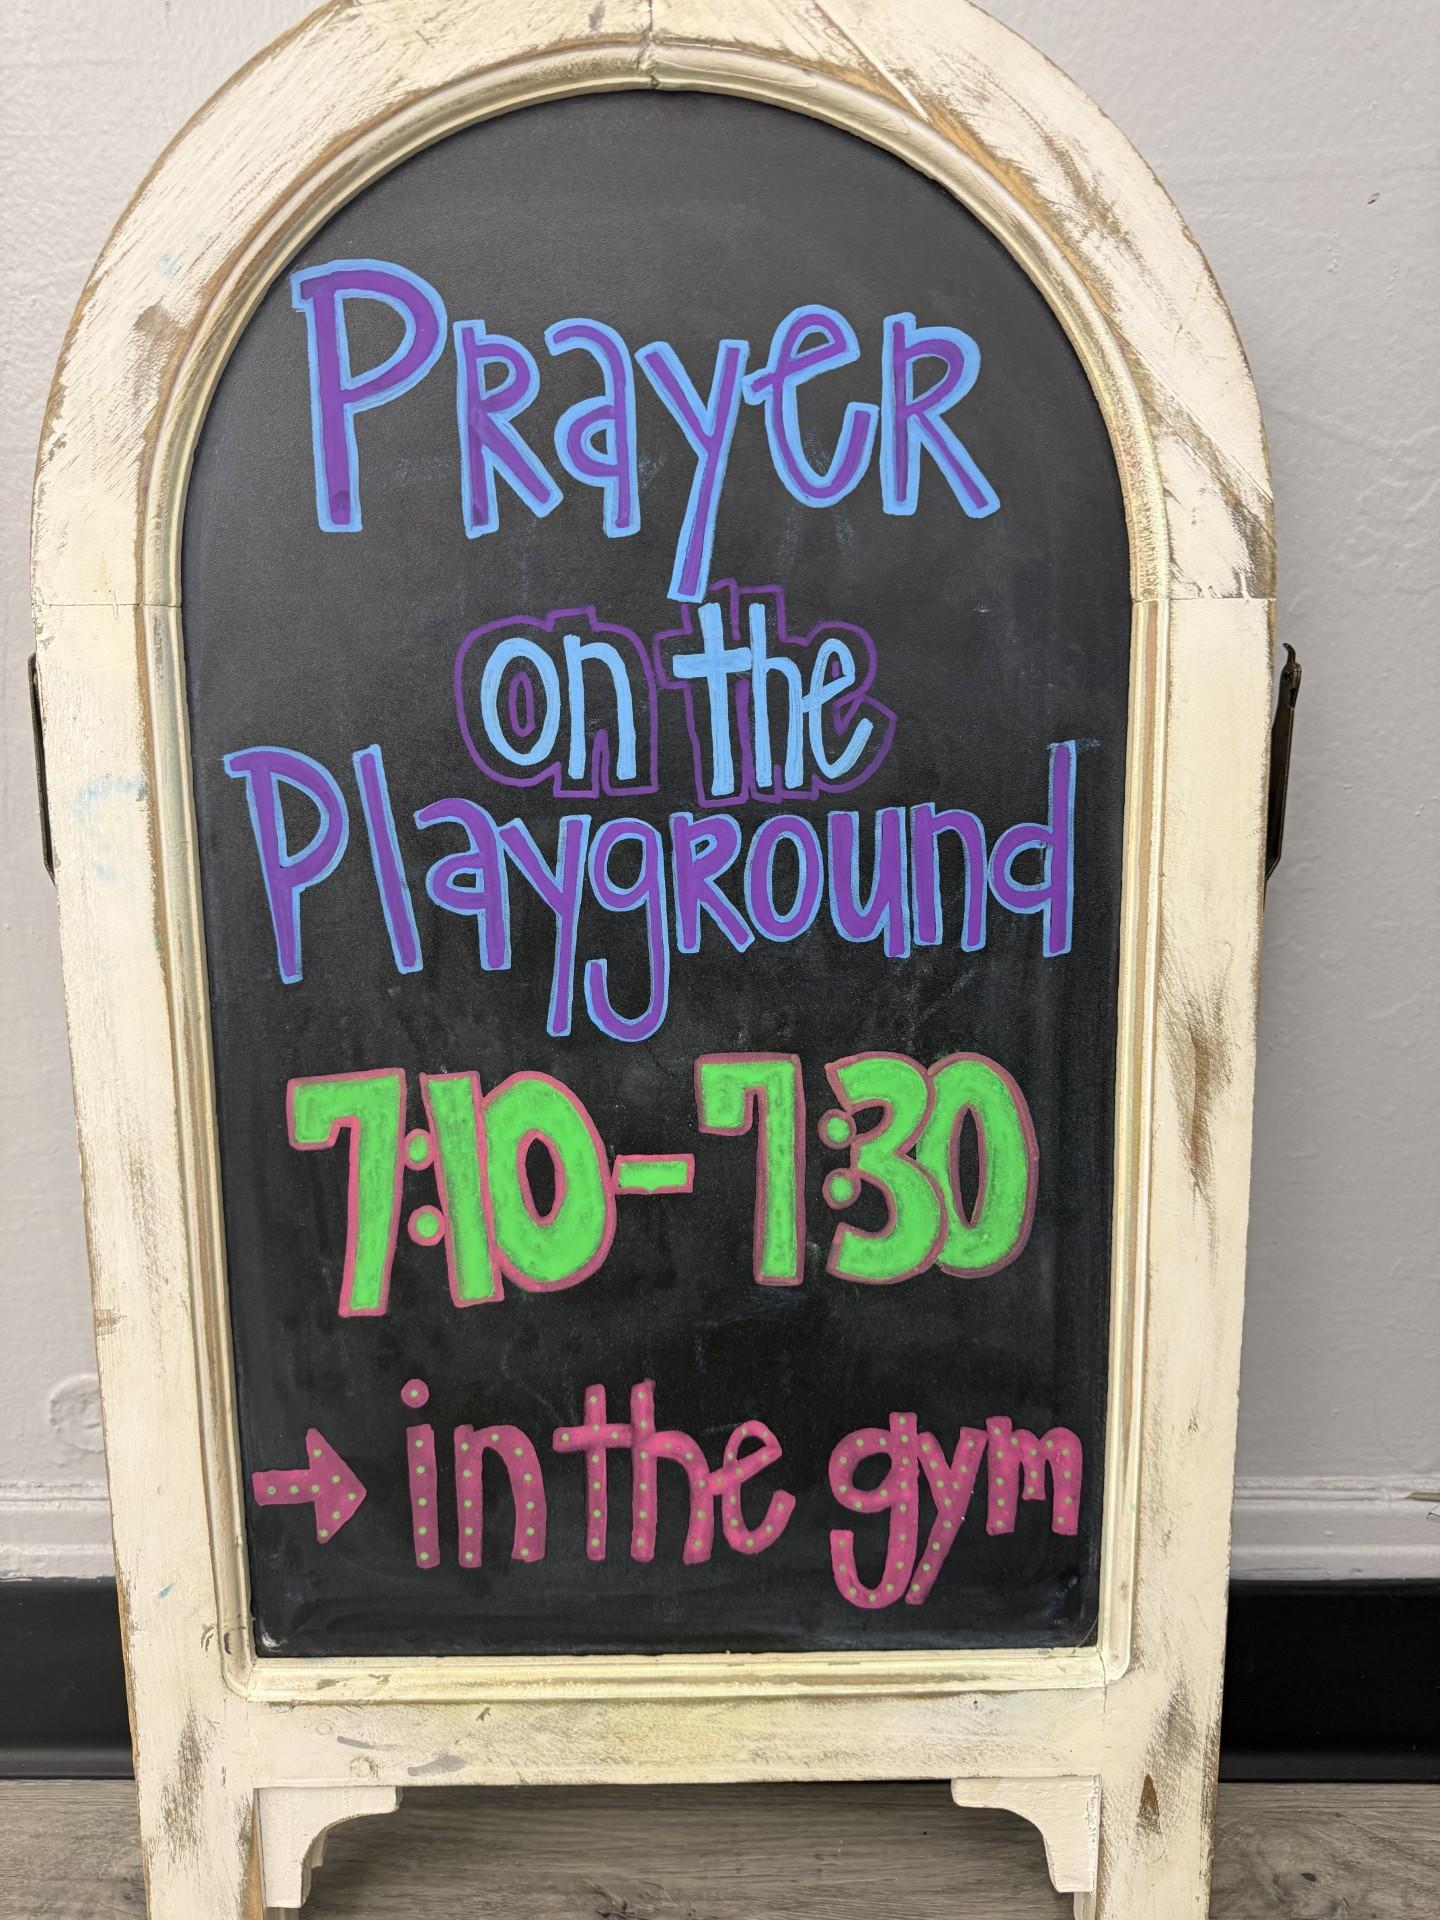 Prayer
on the
Playground
7:10-7:30
→ in the gym